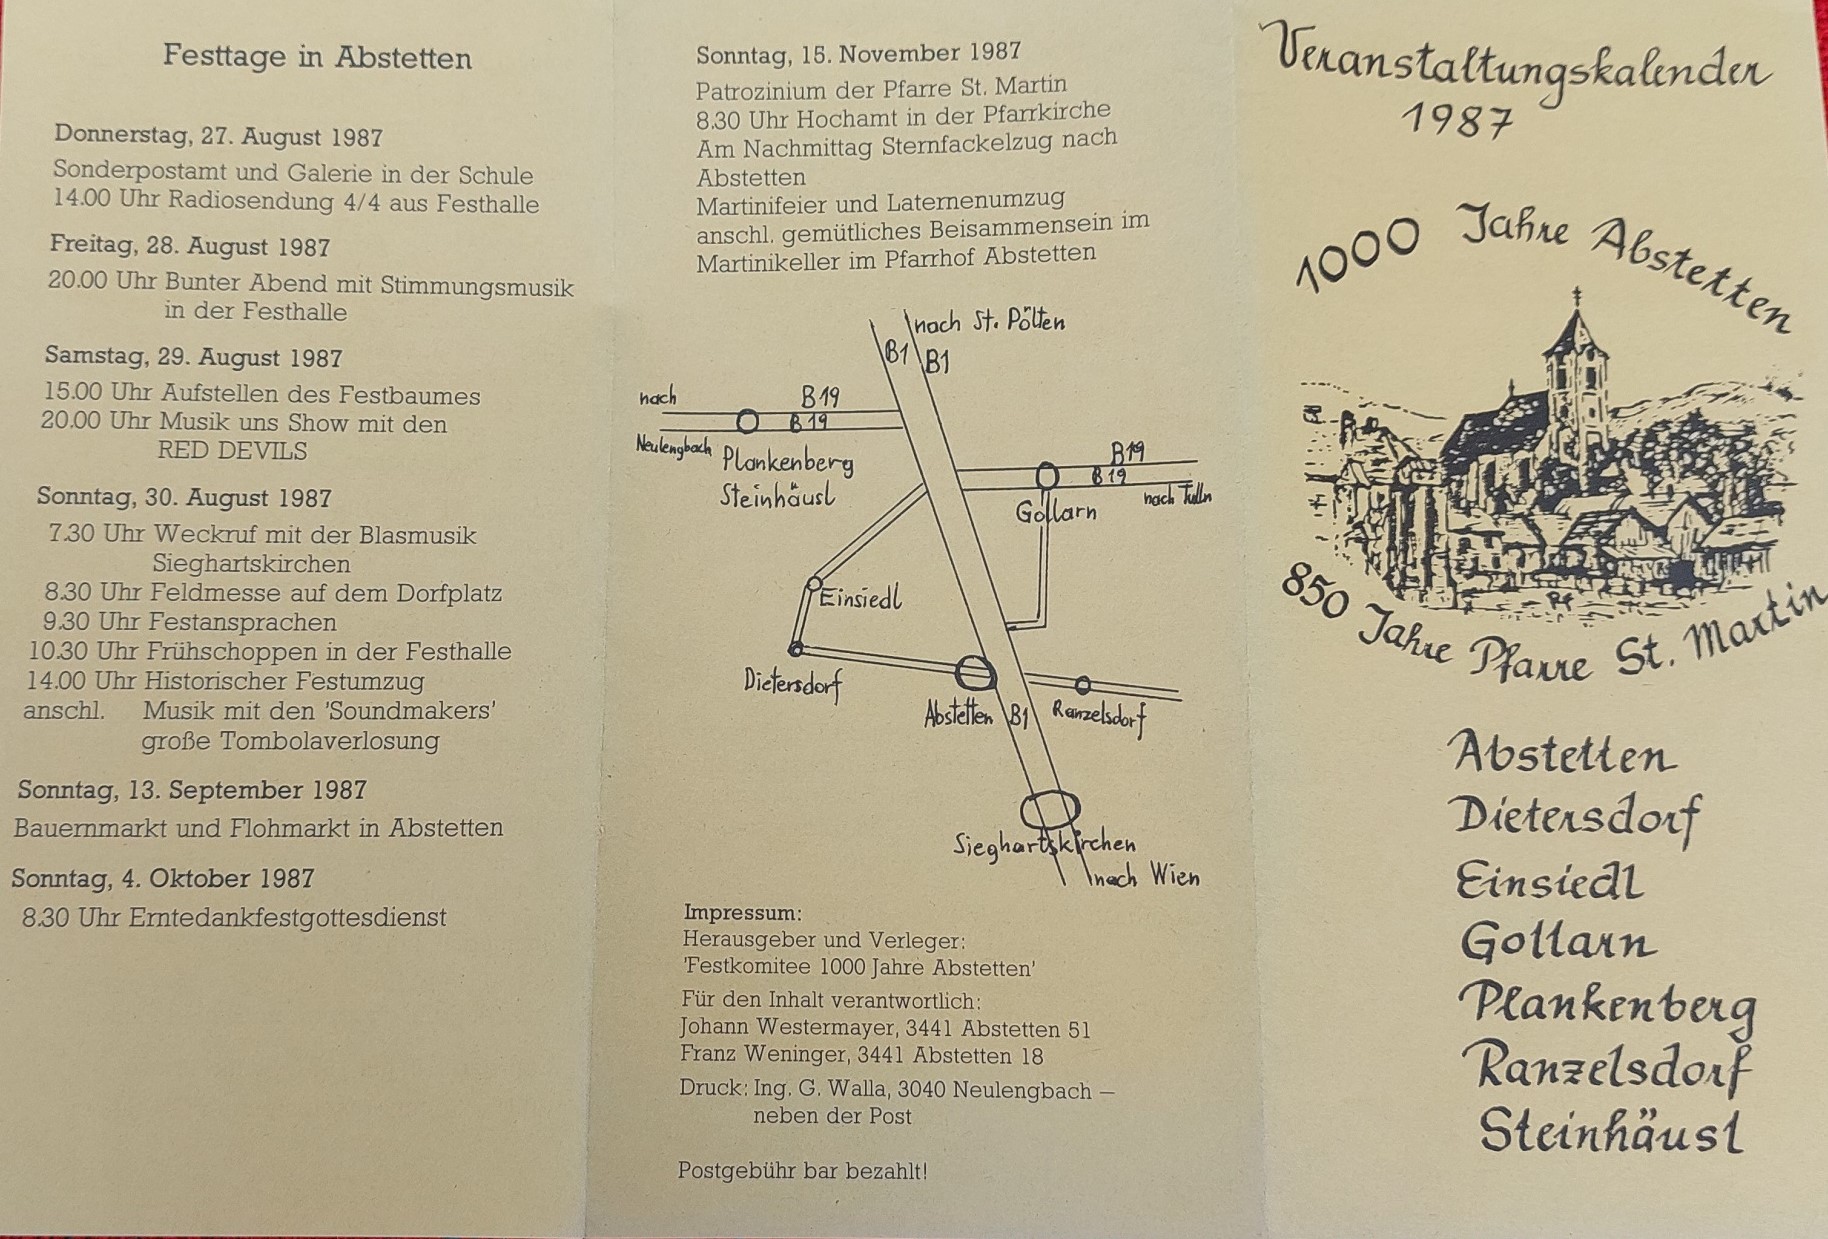 Festtage in Abstetten
Donnerstag, 27. August 1987
Sonderpostamt und Galerie in der Schule
14.00 Uhr Radiosendung 4/4 aus Festhalle
Freitag, 28. August 1987
20.00 Uhr Bunter Abend mit Stimmungsmusik
in der Festhalle
Samstag, 29. August 1987
15.00 Uhr Aufstellen des Festbaumes
20.00 Uhr Musik uns Show mit den
RED DEVILS
Sonntag, 30. August 1987
7.30 Uhr Weckruf mit der Blasmusik
Sieghartskirchen
8.30 Uhr Feldmesse auf dem Dorfplatz
9.30 Uhr Festansprachen
10.30 Uhr Frühschoppen in der Festhalle
14.00 Uhr Historischer Festumzug
anschl. Musik mit den 'Soundmakers'
große Tombolaverlosung
Sonntag, 13. September 1987
Bauernmarkt und Flohmarkt in Abstetten
Sonntag, 4. Oktober 1987
8.30 Uhr Erntedankfestgottesdienst
Sonntag, 15. November 1987
Patrozinium der Pfarre St. Martin
8.30 Uhr Hochamt in der Pfarrkirche
Am Nachmittag Sternfackelzug nach
Abstetten
Martinifeier und Laternenumzug
anschl. gemütliches Beisammensein im
Martinikeller im Pfarrhof Abstetten
nach St. Pölten
B1 B1
nach B19
B19
Neulengbach Plankenberg
Steinhäusl
B19
B19
nach Tulln
Gollarn
Einsiedl
Dietersdorf
Abstetten B1 Ranzelsdorf
Sieghartskirchen
nach Wien
Impressum:
Herausgeber und Verleger:
'Festkomitee 1000 Jahre Abstetten'
Für den Inhalt verantwortlich:
Johann Westermayer, 3441 Abstetten 51
Franz Weninger, 3441 Abstetten 18
Druck: Ing. G. Walla, 3040 Neulengbach –
neben der Post
Postgebühr bar bezahlt!
Veranstaltungskalender
1987
1000 Jahre Abstetten
850 Jahre Pfarre St. Martin
Abstetten
Dietersdorf
Einsiedl
Gollarn
Plankenberg
Ranzelsdorf
Steinhäusl